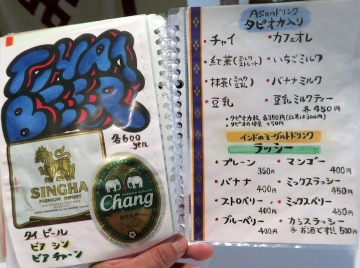 THAI
BEER
各600
yen
SINGHA
PREMIUM IMPORT
Chang
BEER
タイ ビール
ビア シン
ビア チャーン
Asianドリンク
タピオカ入り
・チャイ ・カフェオレ
・紅茶(ミルク ストレート) ・いちごミルク
・抹茶(ミルク 豆乳) ・バナナミルク
・豆乳 ・豆乳ミルクティー
各450yen
インドのヨーグルトドリンク
ラッシー
・プレーン 350円 ・マンゴー 400円
・バナナ 400円 ・ミックスラッシー 450円
・ストロベリー 400円 ・ミックスベリー 450円
・ブルーベリー 400円 ・カシスラッシー
※お酒です!! 500円